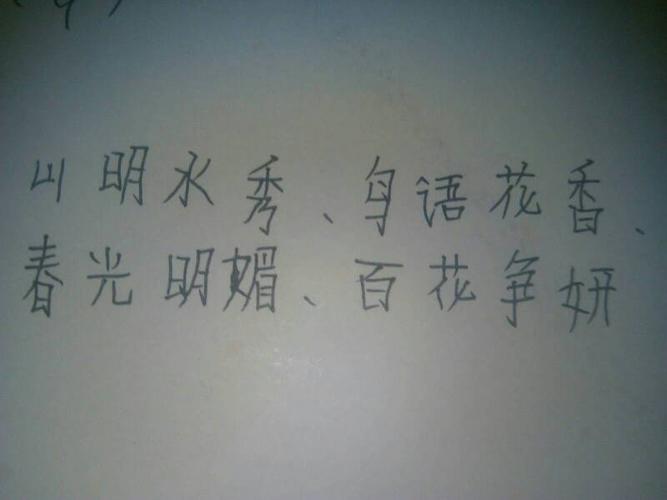 (9)
山明水秀、鸟语花香、
春光明媚、百花争妍